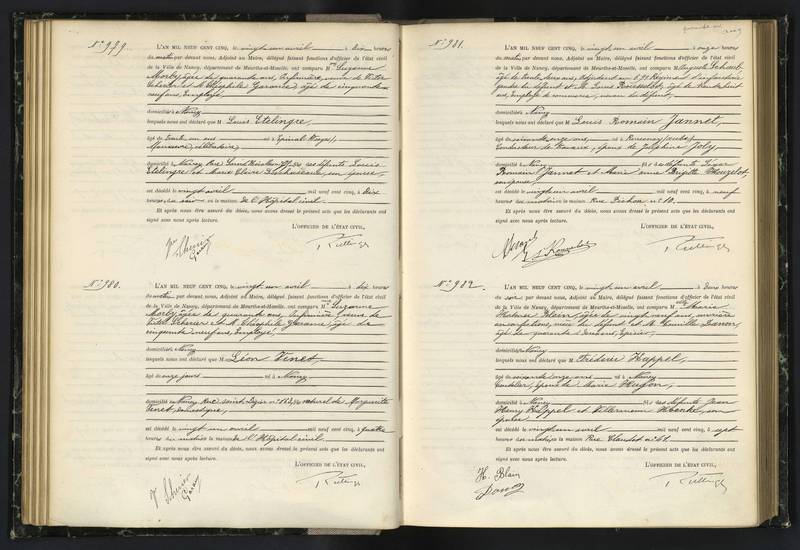 N° 979.
L'AN MIL NEUF CENT CINQ, le vingt un avril à dix heures
du matin par devant nous, Adjoint au Maire, délégué faisant fonctions d'officier de l'état civil
de la Ville de Nancy, département de Meurthe-et-Moselle, ont comparu Mme Suzanne
Morby âgée de quarante ans, Infirmière, veuve de Victor
Scherier et M. Théophile Garanie, âgé de cinquante
neuf ans, Employé,
domiciliés à Nancy
lesquels nous ont déclaré que M Louis Etelingre,
âgé de trente un ans né à Epinal Vosges,
Manœuvre, célibataire,
domicilié à Nancy Rue fils des défunts Louis
Etelingre et Marie Claire son épouse,
est décédé le vingt avril mil neuf cent cinq, à dix
heures du soir en la maison de l'Hôpital civil
Et après nous être assuré du décès, nous avons dressé le présent acte que les déclarants ont
signé avec nous après lecture.
L'OFFICIER DE L'ÉTAT CIVIL,
N° 980.
L'AN MIL NEUF CENT CINQ, le vingt un avril à dix heures
du matin par devant nous, Adjoint au Maire, délégué faisant fonctions d'officier de l'état civil
de la Ville de Nancy, département de Meurthe-et-Moselle, ont comparu Mme Suzanne
Morby âgée de quarante ans, Infirmière, veuve de
Victor Scherier et M. Théophile Garanie, âgé de
cinquante neuf ans, Employé,
domiciliés à Nancy
lesquels nous ont déclaré que M Léon Tenet
âgé de onze jours né à Nancy,
domicilié à Nancy Rue Saint Dizier n° naturel de Marguerite
Tenet, domestique,
est décédé le vingt un avril mil neuf cent cinq, à quatre
heures du matin en la maison de l'Hôpital civil
Et après nous être assuré du décès, nous avons dressé le présent acte que les déclarants ont
signé avec nous après lecture.
L'OFFICIER DE L'ÉTAT CIVIL,
N° 981.
L'AN MIL NEUF CENT CINQ, le vingt un avril à onze heures
du matin par devant nous, Adjoint au Maire, délégué faisant fonctions d'officier de l'état civil
de la Ville de Nancy, département de Meurthe-et-Moselle, ont comparu M
âgé de trente ans, Adjudant au Régiment d'infanterie
gendre du défunt et M. Louis âgé de
ans, Employé de commerce, neveu du défunt,
domiciliés à Nancy
lesquels nous ont déclaré que M Louis Romain Jannet
âgé de soixante onze ans, né à
Conducteur de travaux, époux de Joséphine Joly,
domicilié à Nancy fils des défunts
Romain Jannet et Marie Anne Brigitte
son épouse,
est décédé le vingt un avril mil neuf cent cinq, à neuf
heures du matin en la maison Rue Pichon n° 10.
Et après nous être assuré du décès, nous avons dressé le présent acte que les déclarants ont
signé avec nous après lecture.
L'OFFICIER DE L'ÉTAT CIVIL,
N° 982.
L'AN MIL NEUF CENT CINQ, le vingt un avril à deux heures
du soir par devant nous, Adjoint au Maire, délégué faisant fonctions d'officier de l'état civil
de la Ville de Nancy, département de Meurthe-et-Moselle, ont comparu Melle Marie
Hortense Blein, âgée de vingt neuf ans, ouvrière
en confections, nièce du défunt et M. Camille Danoz
âgé de quarante ans, Epicier,
domiciliés à Nancy
lesquels nous ont déclaré que M Frédéric Happel,
âgé de soixante onze ans né à Nancy
Coutelier, époux de Marie Hugon,
domicilié à Nancy fils des défunts Jean
Henry Happel et son
épouse
est décédé le vingt un avril mil neuf cent cinq, à sept
heures du matin en la maison Rue Claudot n° 61.
Et après nous être assuré du décès, nous avons dressé le présent acte que les déclarants ont
signé avec nous après lecture.
L'OFFICIER DE L'ÉTAT CIVIL,
H. Blein
Danoz